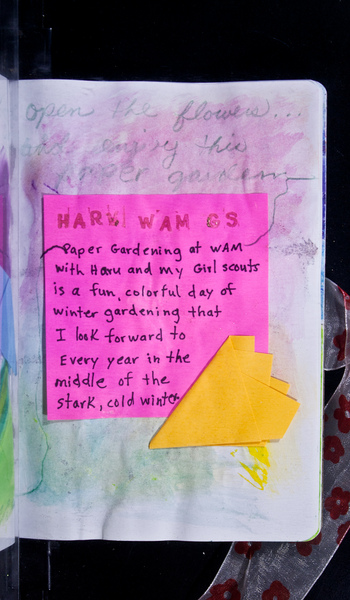 open the flowers...
and enjoy this
paper garden
HARU WAM GS
Paper Gardening at WAM
with Haru and my Girl scouts
is a fun, colorful day of
winter gardening that
I look forward to
Every year in the
middle of the
stark, cold winter